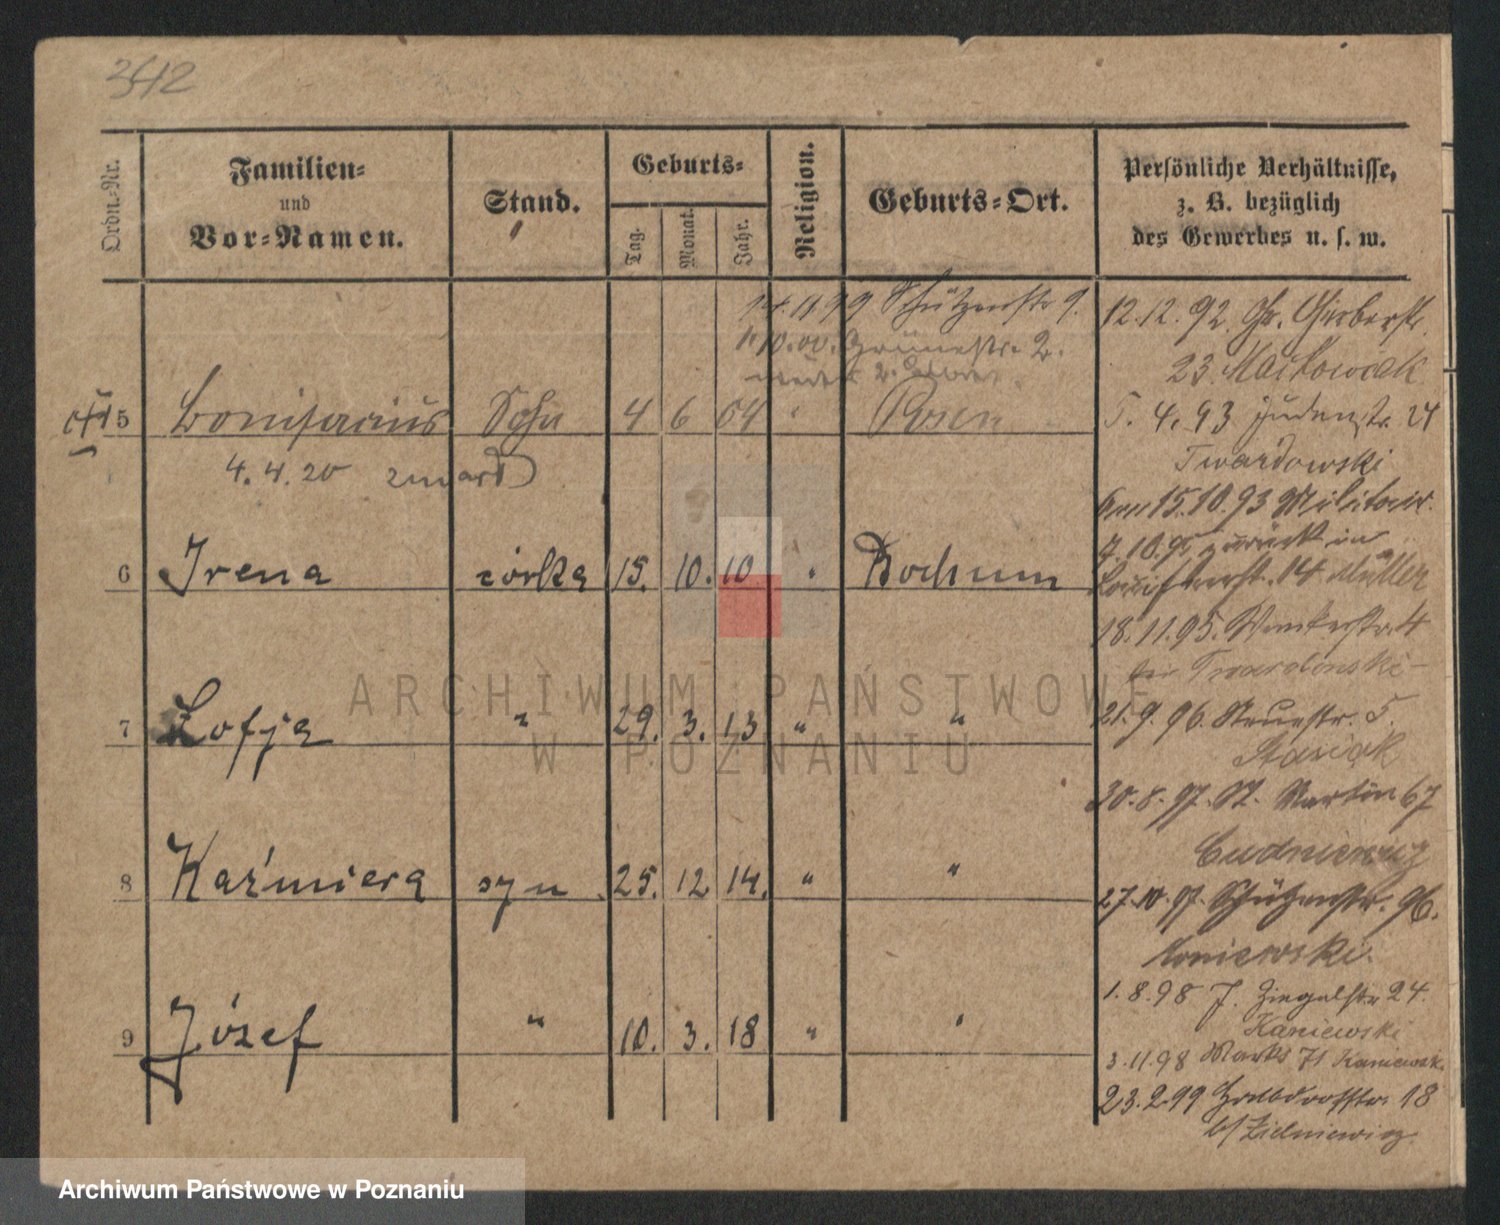 3412
Ordn.-Nr.
Familien-
und
Vor-Namen.
Stand.
Geburts-
Tag.
Monat.
Jahr.
Religion.
Geburts-Ort.
Persönliche Verhältnisse,
z. B. bezüglich
des Gewerbes u. s. w.
14.11.99 Schützenstr 9.
1.10.00. Grünestr. 2.
5 Bonifacius Sohn 4 6 64 " Posen
4.4.20
6 Irena córka 15. 10. 10 " Bochum
7 Zofja " 29. 3. 13 " "
8 Kaźmierz syn 25. 12 14. " "
9 Józef " 10. 3. 18 " "
12.12.92 Gr. Gerberstr.
23. Maćkowiak
5. 4. 93 Judenstr. 24
Twardowski
15.10.93 Militair.
7.10.95 zurück in
14 Müller
18.11.95. 4
Twardowski
21.9.96. Neuestr. 5.
Stasiak
30.8.97. St. Martin 67
27.10.97. Schützenstr. 96.
Koniewski.
1.8.98 Ziegelstr 24.
Kaniewski
3.11.98 Markt 71 Kaniewsk
23.2.99 18
b/ Zielniewicz
ARCHIWUM PAŃSTWOWE
W POZNANIU
Archiwum Państwowe w Poznaniu